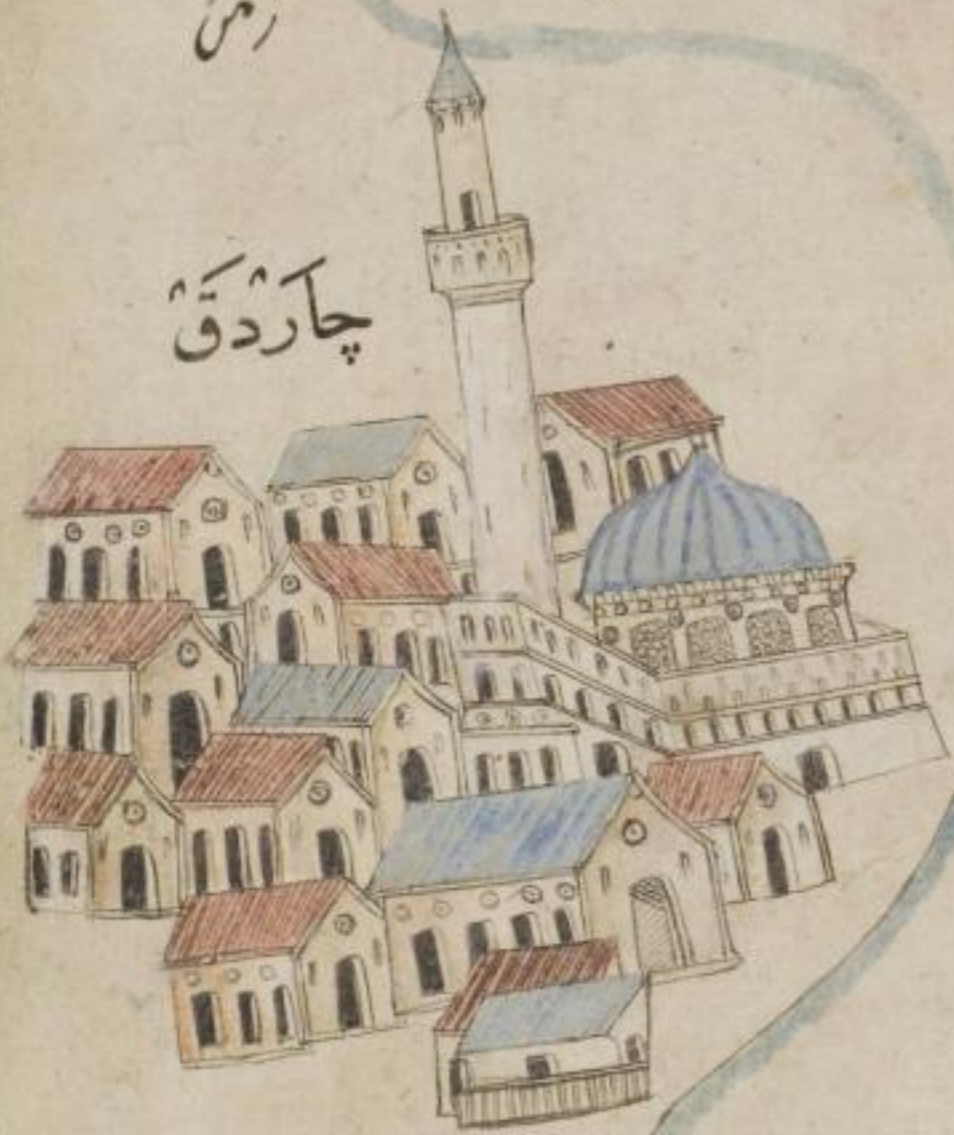 چَارْدَقْ